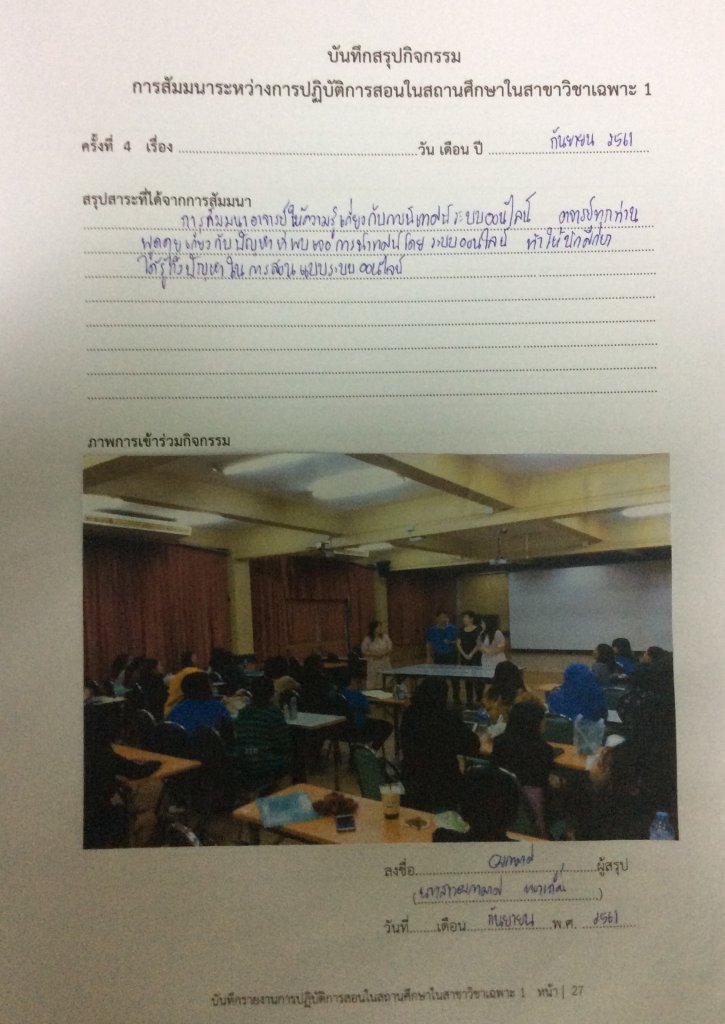 บันทึกสรุปกิจกรรม
การสัมมนาระหว่างการปฏิบัติการสอนในสถานศึกษาในสาขาวิชาเฉพาะ 1
ครั้งที่ 4 เรื่อง ........ วัน เดือน ปี กันยายน 2561
สรุปสาระที่ได้จากการสัมมนา
การสัมมนาอาจารย์ให้ความรู้เกี่ยวกับการนิเทศน์ระบบออนไลน์ อาจารย์ทุกท่าน
พูดคุยเกี่ยวกับปัญหาที่พบเจอการนิเทศน์โดยระบบออนไลน์ ทำให้นักศึกษา
ได้รู้ถึงปัญหาในการสอนแบบระบบออนไลน์
ภาพการเข้าร่วมกิจกรรม
ลงชื่อ ........ ผู้สรุป
วันที่ ........ เดือน กันยายน พ.ศ. 2561
บันทึกรายงานการปฏิบัติการสอนในสถานศึกษาในสาขาวิชาเฉพาะ 1 หน้า | 27